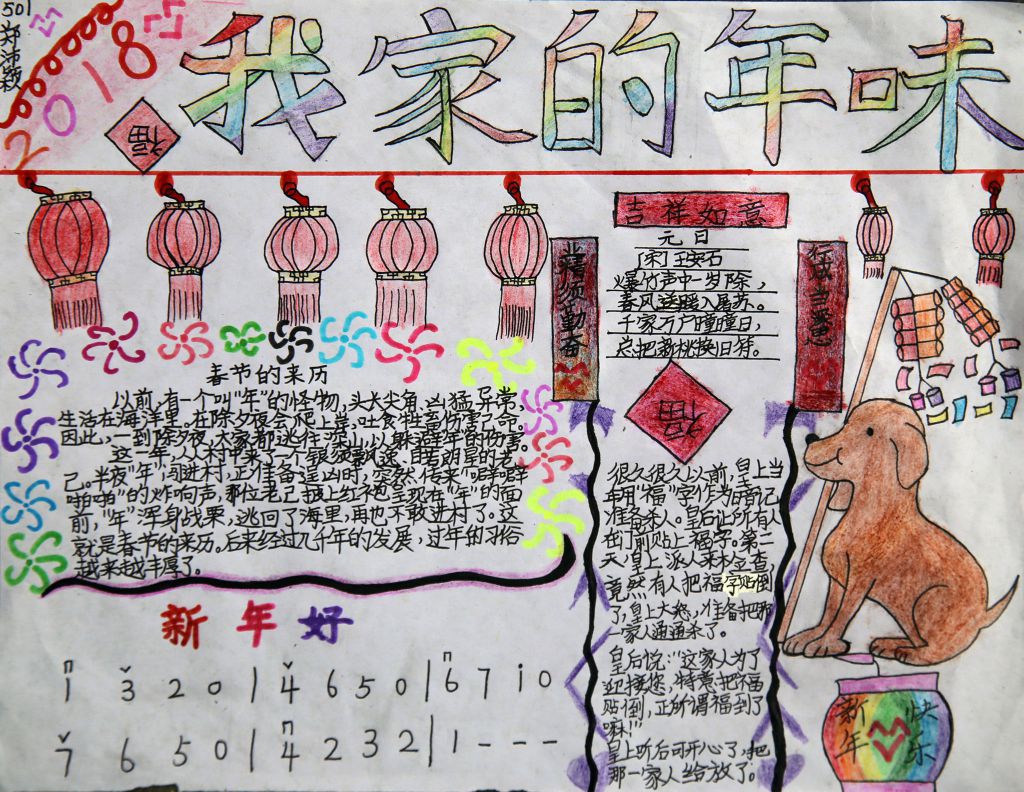 501
2018
我家的年味
福
春节的来历
以前,有一个叫"年"的怪物,头长尖角,凶猛异常,
生活在海洋里。在除夕夜会爬上岸,吐食牲畜伤害人命。
因此,一到除夕夜,大家都逃往深山,以躲避年的伤害。
这一年,人村中来了一个银须飘逸,目若朗星的老
己。半夜"年",闯进村,正准备逞凶时,突然,传来"噼噼
啪啪"的炸响声,那位老己披上红袍呈现在"年"的面
前,"年"浑身战栗,逃回了海里,再也不敢进村了。这
就是春节的来历。后来经过几千年的发展,过年的习俗
越来越丰厚了。
新年好
1 3 2 0 | 4 6 5 0 | 6 7 i 0
7 6 5 0 | 4 2 3 2 | 1 - - -
吉祥如意
业精须勤奋
行成当三思
元日
[宋]王安石
爆竹声中一岁除,
春风送暖入屠苏。
千家万户曈曈日,
总把新桃换旧符。
福
很久很久以前,皇上当
年用"福"字作为暗记
准备杀人。皇后让所有人
在门前贴上福字。第二
天,皇上派人来检查
竟然有人把福字贴倒
了,皇上大怒,准备把那
一家人通通杀了。
皇后说:"这家人为了
迎接您,特意把福
贴倒,正所谓福到了
嘛!"
皇上听后可开心了,把
那一家人给放了。
新年快乐